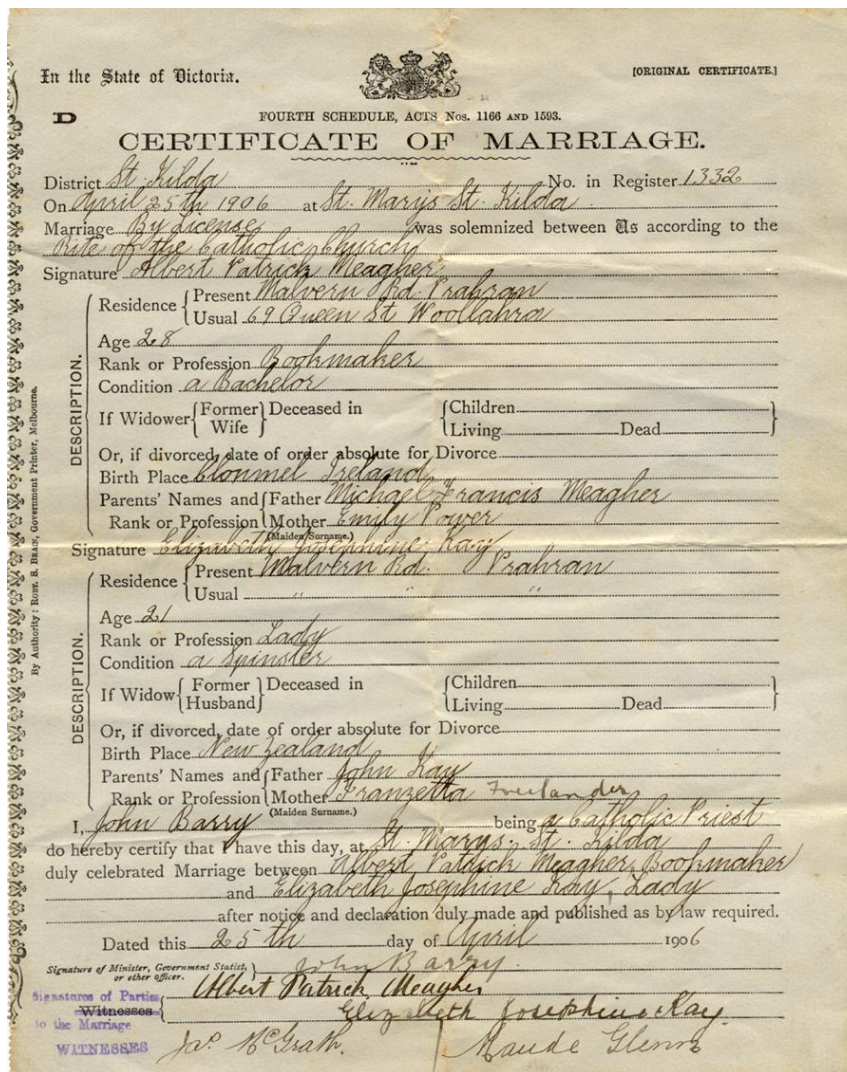 In the State of Victoria.
[ORIGINAL CERTIFICATE.]
D
FOURTH SCHEDULE, ACTS Nos. 1166 AND 1593.
CERTIFICATE OF MARRIAGE.
District St. Kilda No. in Register 1332
On April 25th 1906 at St. Marys St. Kilda
Marriage By License was solemnized between Us according to the
Rite of the Catholic Church
Signature Albert Patrick Meagher
DESCRIPTION.
Residence { Present Malvern Rd. Prahran
Usual 69 Queen St Woollahra
Age 28
Rank or Profession Bookmaker
Condition a Bachelor
If Widower { Former Wife } Deceased in { Children
Living Dead }
Or, if divorced, date of order absolute for Divorce
Birth Place Clonmel Ireland
Parents' Names and { Father Michael Francis Meagher
Rank or Profession { Mother Emily Power
(Maiden Surname.)
Signature Elizabeth Josephine Kay
DESCRIPTION.
Residence { Present Malvern Rd. Prahran
Usual " " "
Age 21
Rank or Profession Lady
Condition a Spinster
If Widow { Former Husband } Deceased in { Children
Living Dead }
Or, if divorced, date of order absolute for Divorce
Birth Place New Zealand
Parents' Names and { Father John Kay
Rank or Profession { Mother Franzetta
(Maiden Surname.)
I, John Barry being a Catholic Priest
do hereby certify that I have this day, at St. Marys St. Kilda
duly celebrated Marriage between Albert Patrick Meagher, Bookmaker
and Elizabeth Josephine Kay, Lady
after notice and declaration duly made and published as by law required.
Dated this 25th day of April 1906
Signature of Minister, Government Statist, or other officer. } John Barry.
Signatures of Parties
Albert Patrick Meagher
Witnesses
Elizabeth Josephine Kay
to the Marriage
WITNESSES
Jas. McGrath. Maude Glenn
By Authority: ROBT. S. BRAIN, Government Printer, Melbourne.